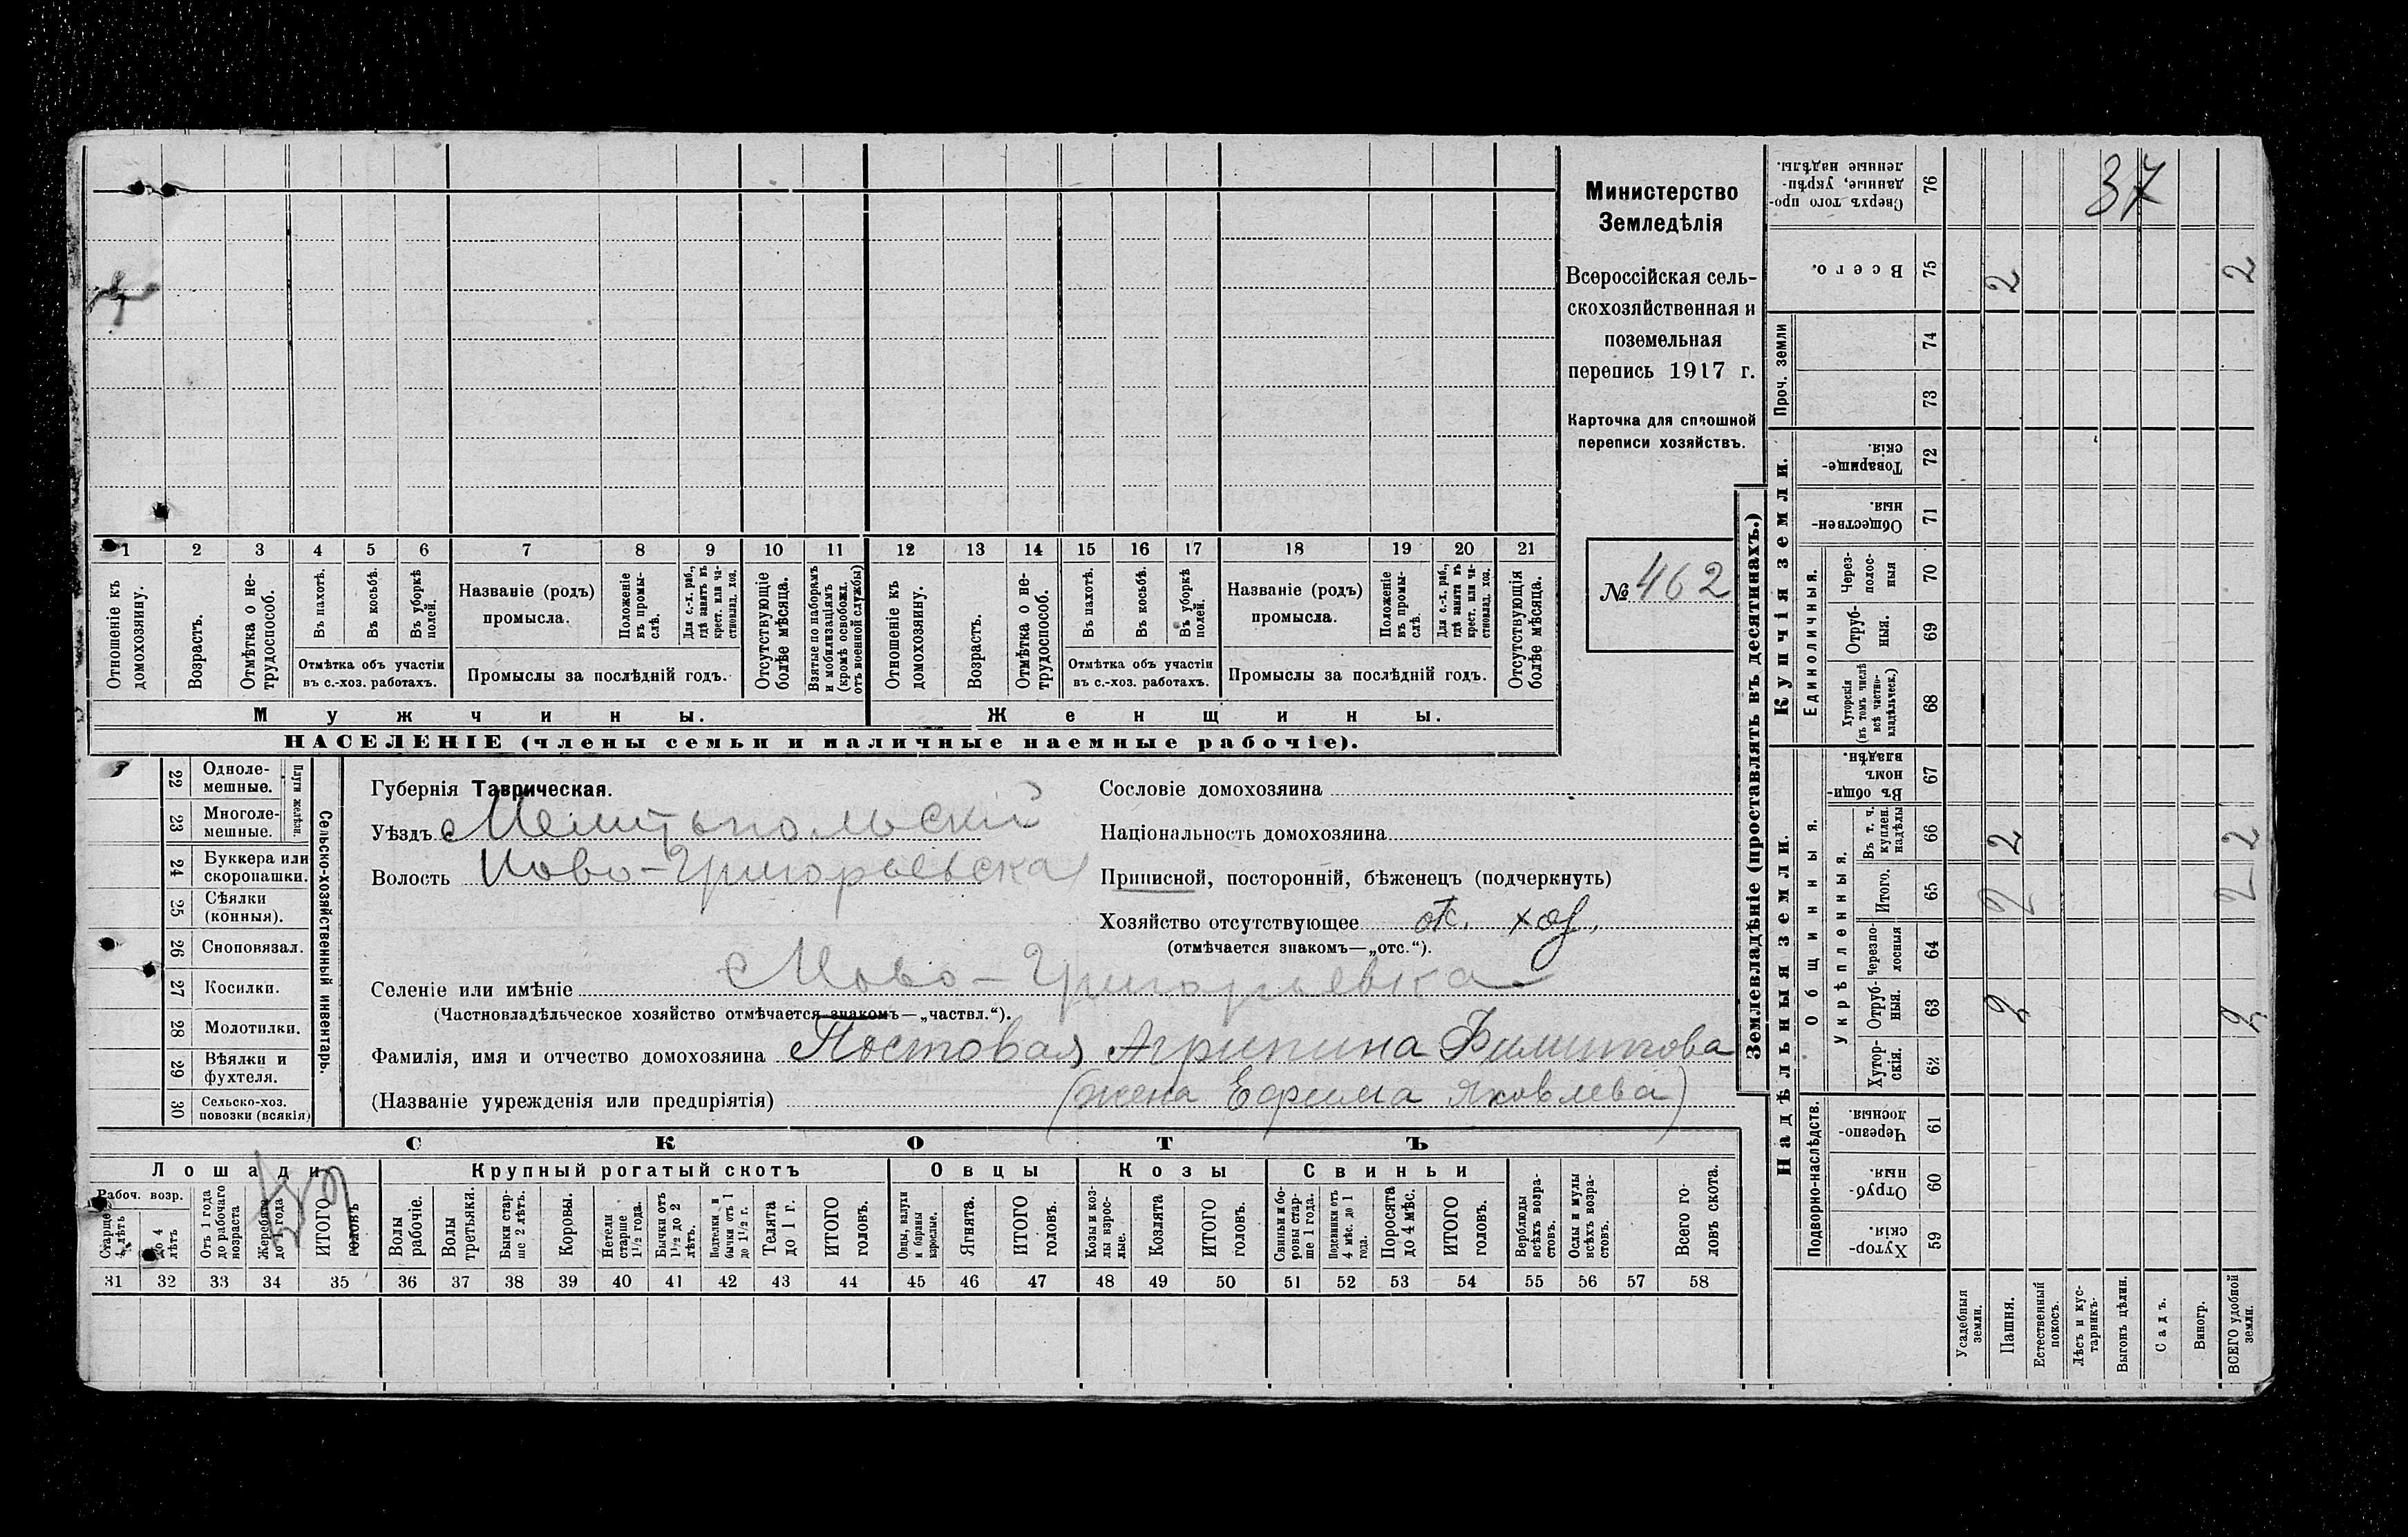 Министерство
Земледѣлія
Всероссійская сель-
скохозяйственная и
поземельная
перепись 1917 г.
Карточка для сплошной
переписи хозяйствъ.
№ 462
1 2 3 4 5 6 7 8 9 10 11 12 13 14 15 16 17 18 19 20 21
Отношеніе къ домохозяину.
Возрастъ.
Отмѣтка о не-трудоспособ.
Въ пахотѣ.
Въ косьбѣ.
Въ уборкѣ полей.
Отмѣтка объ участіи
въ с.-хоз. работахъ.
Названіе (родъ)
промысла.
Положеніе въ промы-слѣ.
Для с.-х. раб., гдѣ занятъ въ крест. или ча-стновлад. хоз.
Промыслы за послѣдній годъ.
Отсутствующіе болѣе мѣсяца.
Взятые по наборамъ и мобилизаціямъ (кромѣ освобожд. отъ военной службы)
Отношеніе къ домохозяину.
Возрастъ.
Отмѣтка о не-трудоспособ.
Въ пахотѣ.
Въ косьбѣ.
Въ уборкѣ полей.
Отмѣтка объ участіи
въ с.-хоз. работахъ.
Названіе (родъ)
промысла.
Положеніе въ промы-слѣ.
Для с.-х. раб., гдѣ занята въ крест. или ча-стновлад. хоз.
Промыслы за послѣдній годъ.
Отсутствующія болѣе мѣсяца.
Мужчины.
Женщины.
НАСЕЛЕНІЕ (члены семьи и наличные наемные рабочіе).
Сельско-хозяйственный инвентарь.
Плуги желѣзн.
22 Одноле-мешные.
23 Многоле-мешные.
24 Буккера или скоропашки.
25 Сѣялки (конныя).
26 Сноповязал.
27 Косилки.
28 Молотилки.
29 Вѣялки и фухтеля.
30 Сельско-хоз. повозки (всякія)
Губернія Таврическая.
Уѣздъ Мелитопольскій
Волость Ново-Григорьевская
Сословіе домохозяина
Національность домохозяина
Приписной, посторонній, бѣженецъ (подчеркнуть)
Хозяйство отсутствующее отс. хоз.
(отмѣчается знакомъ—„отс.“).
Селеніе или имѣніе Ново-Григорьевка
(Частновладѣльческое хозяйство отмѣчается знакомъ—„частвл.“).
Фамилія, имя и отчество домохозяина Постовая Агрипина Филиппова
(Названіе учрежденія или предпріятія) (жена Ефима Яковлева)
СКОТЪ
Лошади
Крупный рогатый скотъ
Овцы
Козы
Свиньи
Рабоч. возр.
Старше 4 лѣтъ
до 4 лѣтъ
Отъ 1 года до рабочаго возраста
Жеребята до 1 года
ИТОГО головъ
Волы рабочіе.
Волы третьяки.
Быки стар-ше 2 лѣтъ.
Коровы.
Нетели старше 1½ года.
Бычки отъ 1½ до 2 лѣтъ.
Подтелки и бычки отъ 1 до 1½ г.
Телята до 1 г.
ИТОГО головъ.
Овцы, валухи и бараны взрослые.
Ягнята.
ИТОГО головъ.
Козы и коз-лы взрос-лые.
Козлята
ИТОГО головъ.
Свиньи и бо-ровы стар-ше 1 года.
Подсвинки отъ 4 мѣс. до 1 года.
Поросята до 4 мѣс.
ИТОГО головъ.
Верблюды всѣхъ возра-стовъ.
Ослы и мулы всѣхъ возра-стовъ.
Всего го-ловъ скота.
31 32 33 34 35 36 37 38 39 40 41 42 43 44 45 46 47 48 49 50 51 52 53 54 55 56 57 58
Землевладѣніе (проставлять въ десятинахъ.)
37
Сверхъ того про-данные, укрѣп-ленные надѣлы. 76
Всего. 75 2 2
Проч. земли
74
73
Купчія земли.
Товарище-скія. 72
Обществен-ныя 71
Единоличныя.
Через-полос-ныя 70
Отруб-ныя. 69
Хуторскія (въ томъ числѣ всѣ частно-владѣльческ.) 68
Надѣльныя земли.
Общинныя.
Въ общи-номъ владѣн. 67
Укрѣпленныя.
Въ т. ч. куплен. надѣлы 66 2 2
Итого. 65 2 2
Черезпо-лосныя 64
Отруб-ныя. 63 2 2
Хутор-скія. 62
Подворно-наслѣдств.
Черезпо-лосныя. 61
Отруб-ныя. 60
Хутор-скія. 59
Усадебныя земли.
Пашня.
Естественный покосъ.
Лѣсъ и кус-тарникъ.
Выгонъ цѣлин.
Садъ.
Виногр.
ВСЕГО удобной земли.